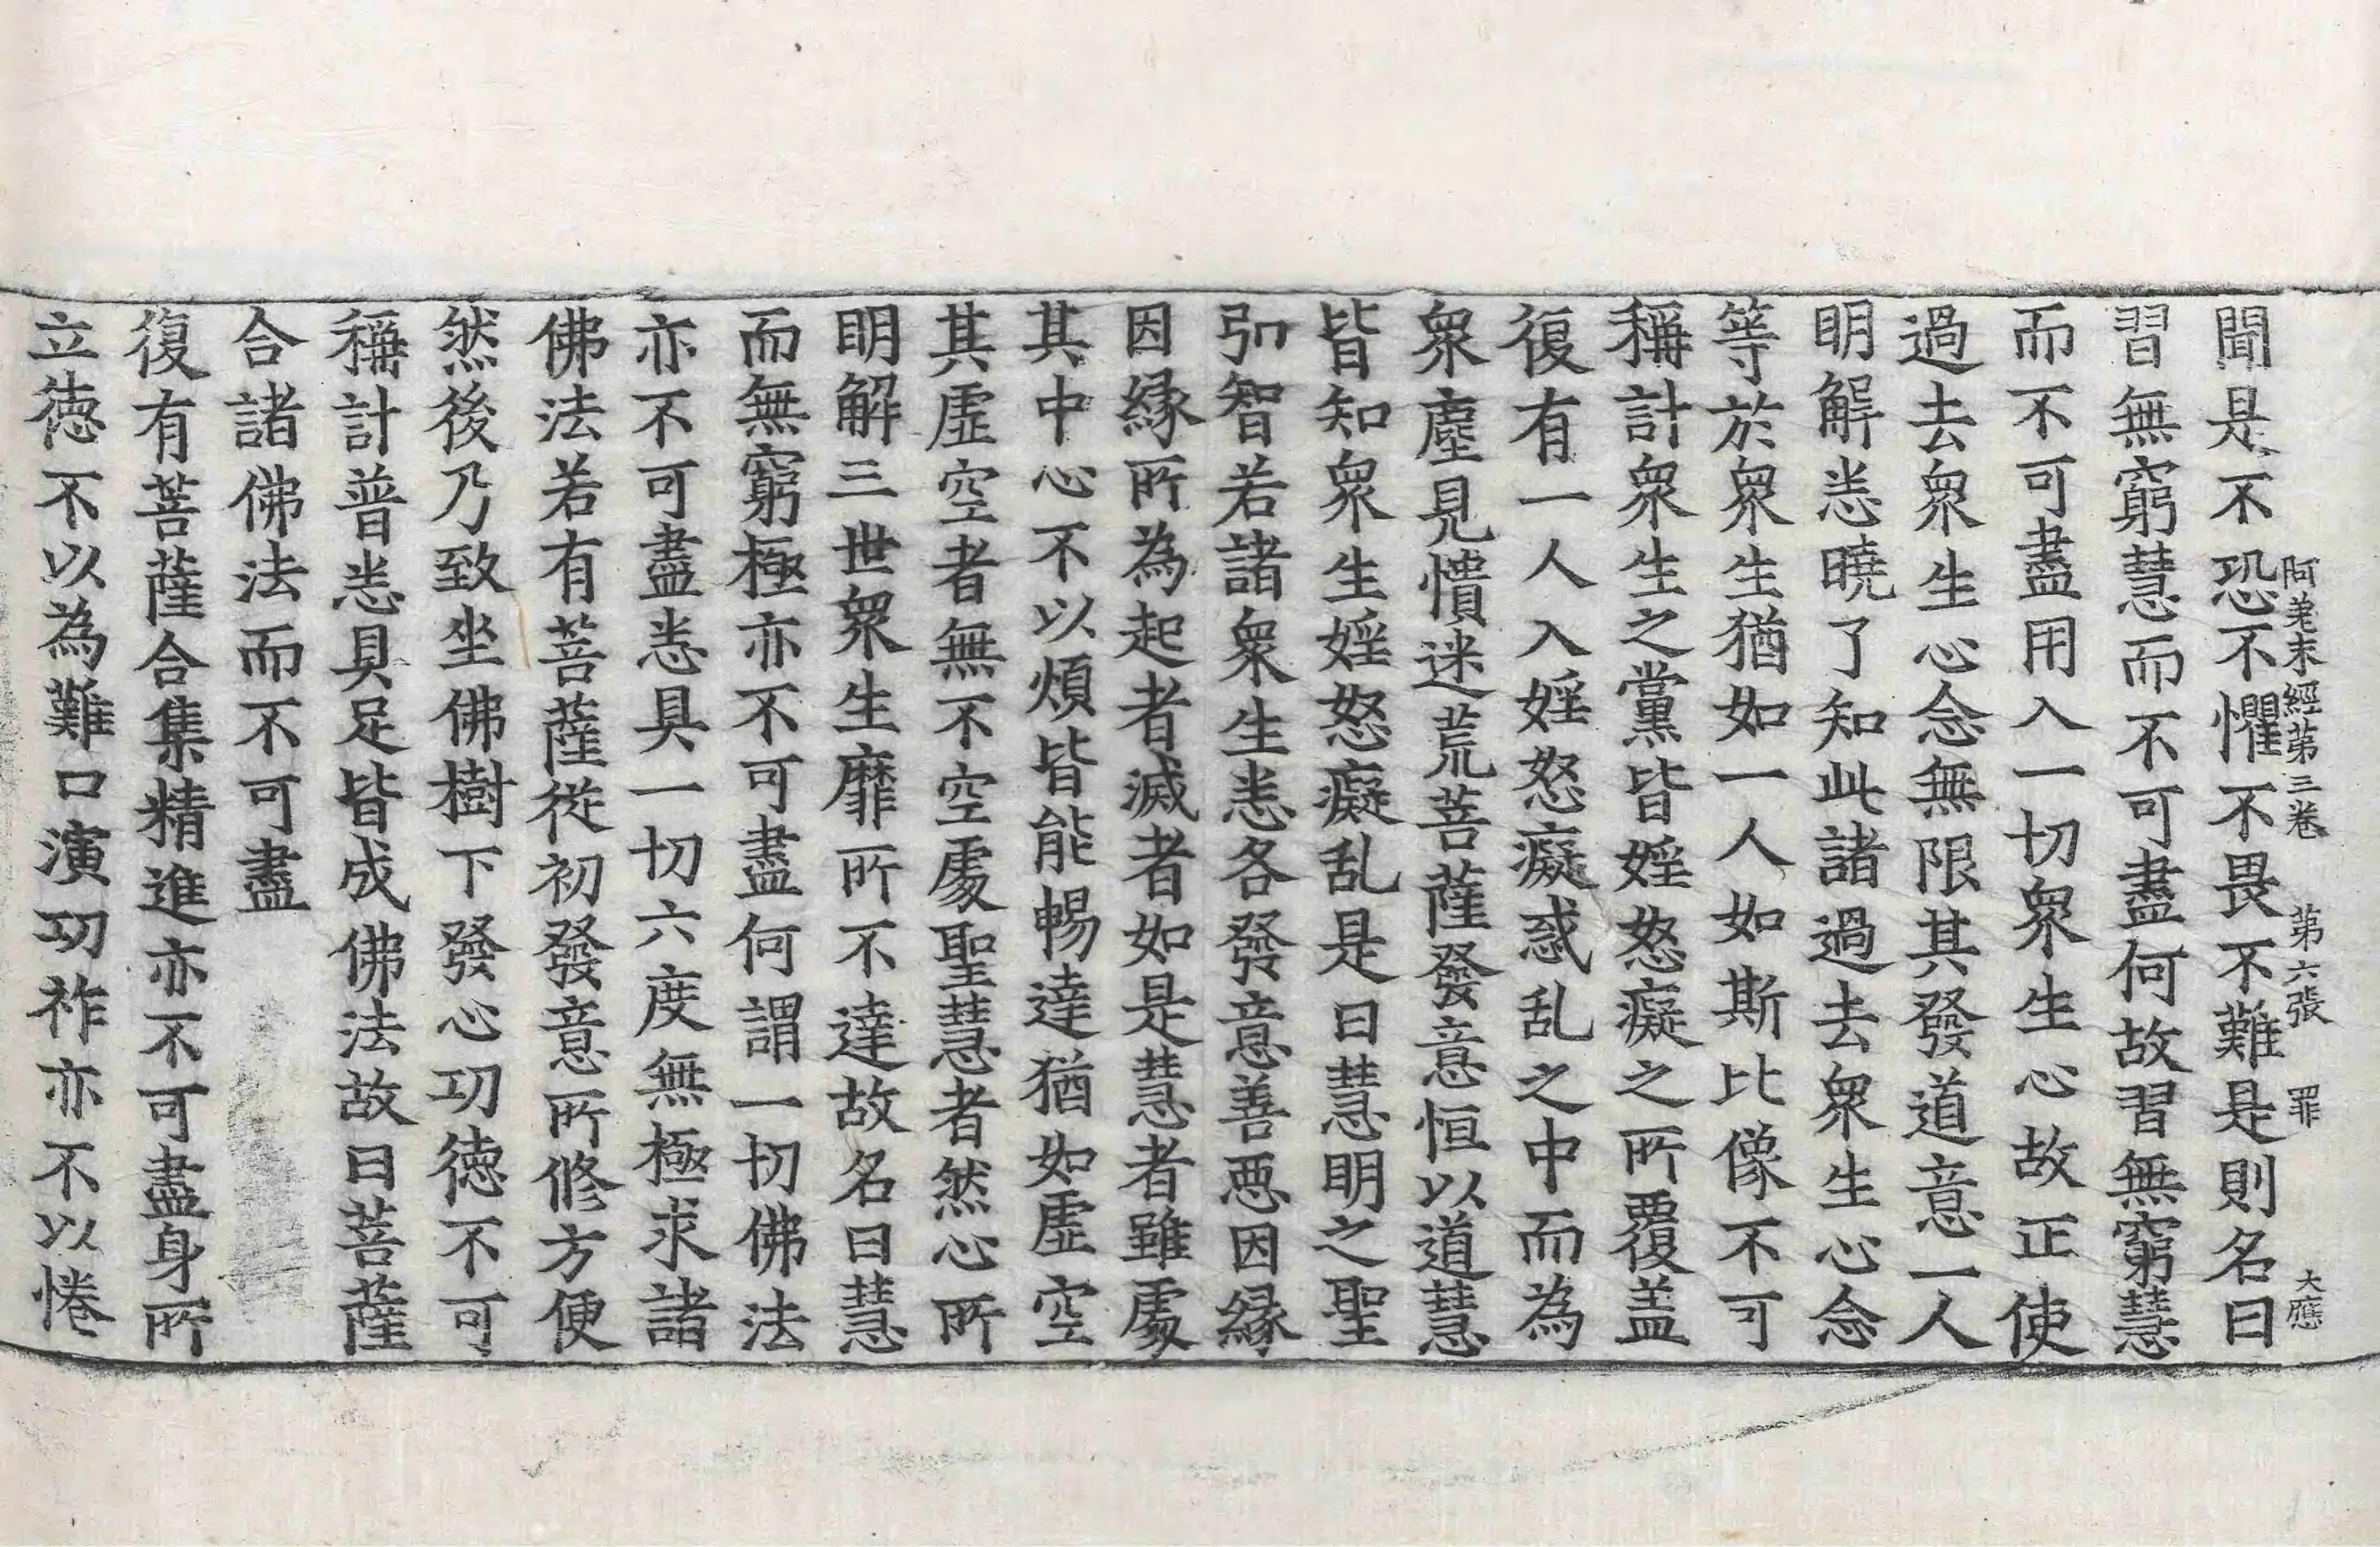 阿差末經第三卷 第六張 罪 大應
聞是不恐不懼不畏不難是則名曰
習無窮慧而不可盡何故習無窮慧
而不可盡用入一切衆生心故正使
過去衆生心念無限其發道意一人
明解悉曉了知此諸過去衆生心念
等於衆生猶如一人如斯比像不可
稱計衆生之黨皆婬怒癡之所覆盖
復有一人入婬怒癡惑乱之中而為
衆塵見憒迷荒菩薩發意恒以道慧
皆知衆生婬怒癡乱是曰慧明之聖
引智若諸衆生悉各發意善惡因縁
因縁所為起者滅者如是慧者雖處
其中心不以煩皆能暢達猶如虛空
其虛空者無不空處聖慧者然心所
明解三世衆生靡所不達故名曰慧
而無窮極亦不可盡何謂一切佛法
亦不可盡悉具一切六度無極求諸
佛法若有菩薩從初發意所修方便
然後乃致坐佛樹下發心功德不可
稱計普悉具足皆成佛法故曰菩薩
合諸佛法而不可盡
復有菩薩合集精進亦不可盡身所
立德不以為難口演功祚亦不以惓